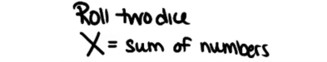 Roll two dice
X = sum of numbers